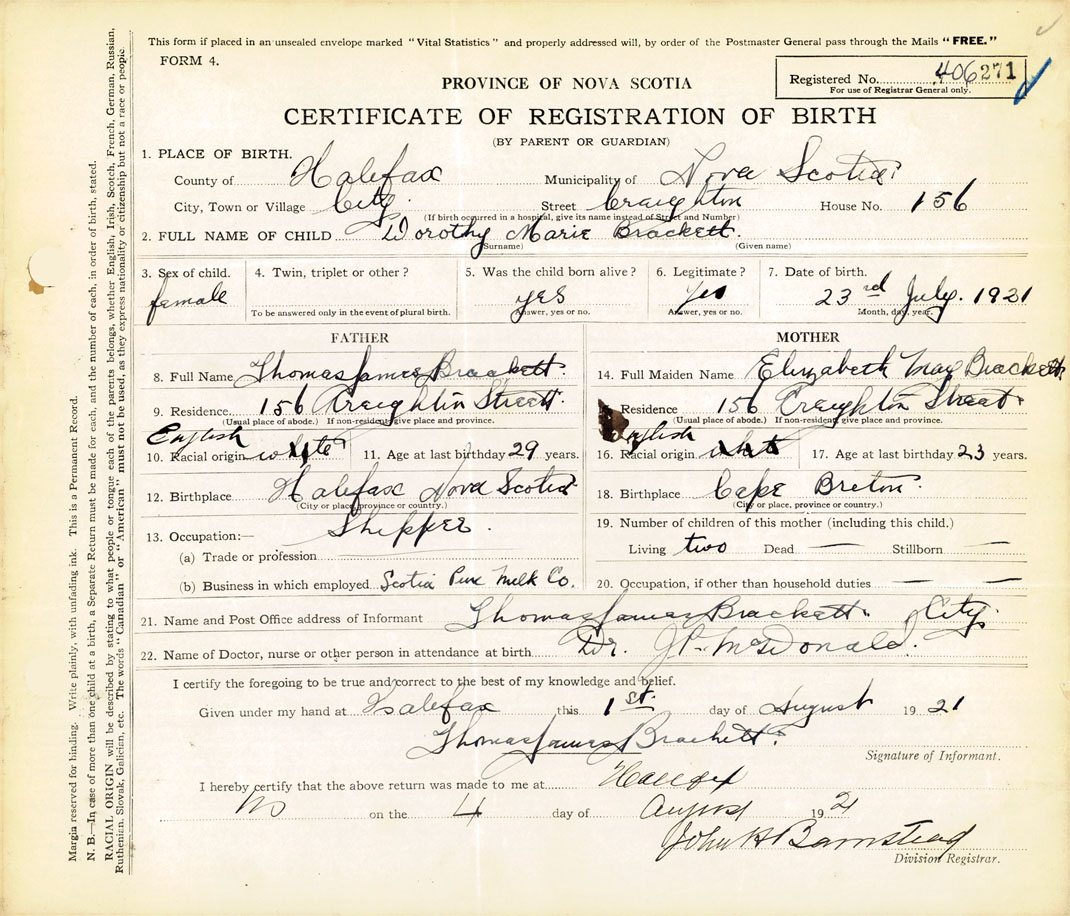 This form if placed in an unsealed envelope marked "Vital Statistics" and properly addressed will, by order of the Postmaster General pass through the Mails "FREE."
FORM 4.
Registered No. 406271
For use of Registrar General only.
PROVINCE OF NOVA SCOTIA
CERTIFICATE OF REGISTRATION OF BIRTH
(BY PARENT OR GUARDIAN)
1. PLACE OF BIRTH.
County of Halifax Municipality of Nova Scotia
City, Town or Village City Street Creighton House No. 156
(If birth occurred in a hospital, give its name instead of Street and Number)
2. FULL NAME OF CHILD Dorothy Marie Brackett.
(Surname) (Given name)
3. Sex of child. 4. Twin, triplet or other? 5. Was the child born alive? 6. Legitimate? 7. Date of birth.
female yes Yes 23rd July. 1921
To be answered only in the event of plural birth. Answer, yes or no. Answer, yes or no. Month, day, year.
FATHER
8. Full Name Thomas James Brackett.
9. Residence 156 Creighton Street.
(Usual place of abode.) If non-resident, give place and province.
English
10. Racial origin white 11. Age at last birthday 29 years.
12. Birthplace Halifax Nova Scotia
(City or place, province or country.)
13. Occupation:— Shipper.
(a) Trade or profession
(b) Business in which employed Scotia Pure Milk Co.
MOTHER
14. Full Maiden Name Elizabeth May Brackett.
Residence 156 Creighton Street.
(Usual place of abode.) If non-resident, give place and province.
English
16. Racial origin white 17. Age at last birthday 23 years.
18. Birthplace Cape Breton.
(City or place, province or country.)
19. Number of children of this mother (including this child.)
Living two Dead — Stillborn —
20. Occupation, if other than household duties — —
21. Name and Post Office address of Informant Thomas James Brackett. City.
22. Name of Doctor, nurse or other person in attendance at birth Dr. McDonald.
I certify the foregoing to be true and correct to the best of my knowledge and belief.
Given under my hand at Halifax this 1st. day of August 1921
Thomas James Brackett.
Signature of Informant.
I hereby certify that the above return was made to me at Halifax
NS on the 4 day of August 1921
John H Barnstead
Division Registrar.
Margin reserved for binding. Write plainly, with unfading ink. This is a Permanent Record.
N. B.—In case of more than one child at a birth, a Separate Return must be made for each, and the number of each, in order of birth, stated.
RACIAL ORIGIN will be described by stating to what people or tongue each of the parents belongs, whether English, Irish, Scotch, French, German, Russian,
Ruthenian, Slovak, Galician, etc. The words "Canadian" or "American" must not be used, as they express nationality or citizenship but not a race or people.